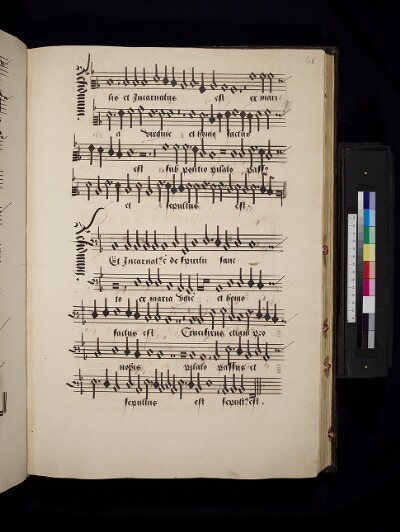 lis et Incarnatus est ex mari
a virgine et homo factus
est sub pontio pilato pass9
et sepultus est.
Et Incarnat9 ē de spiritu sanc
to ex maria et homo
factus est Crucifixus etiam pro
nobis pilato passus et
sepultus est sepult9 est.